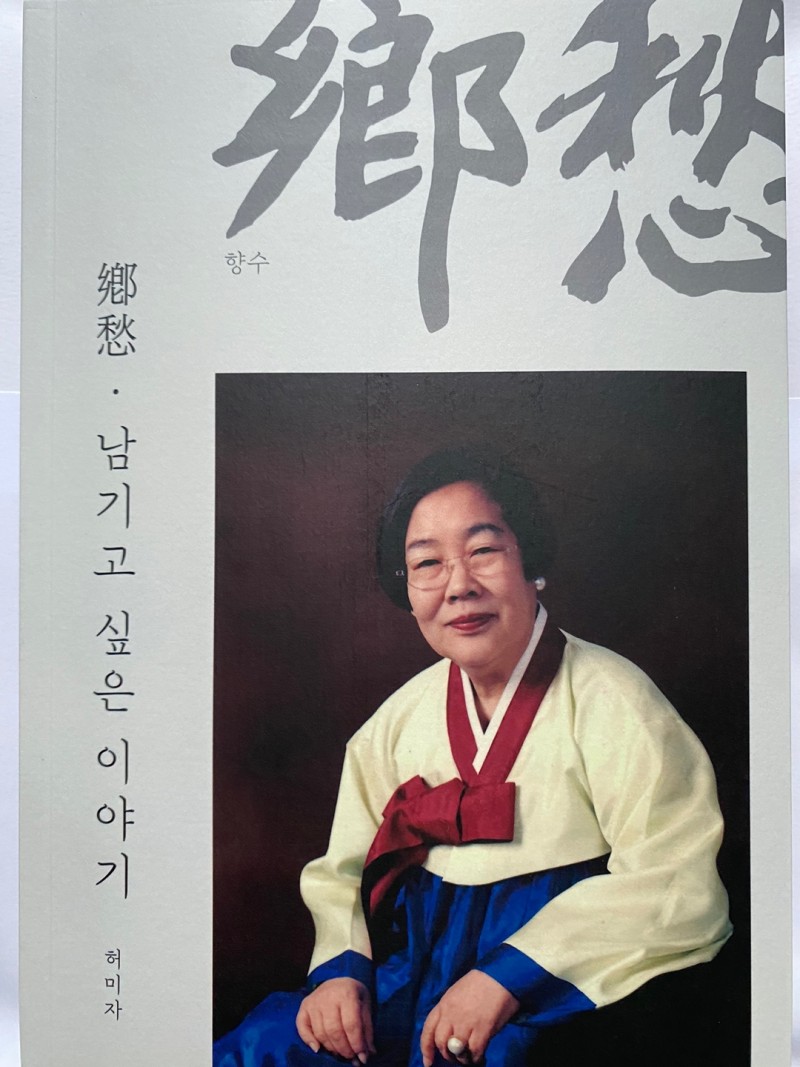 鄕愁
향수
鄕愁 · 남기고 싶은 이야기
허미자